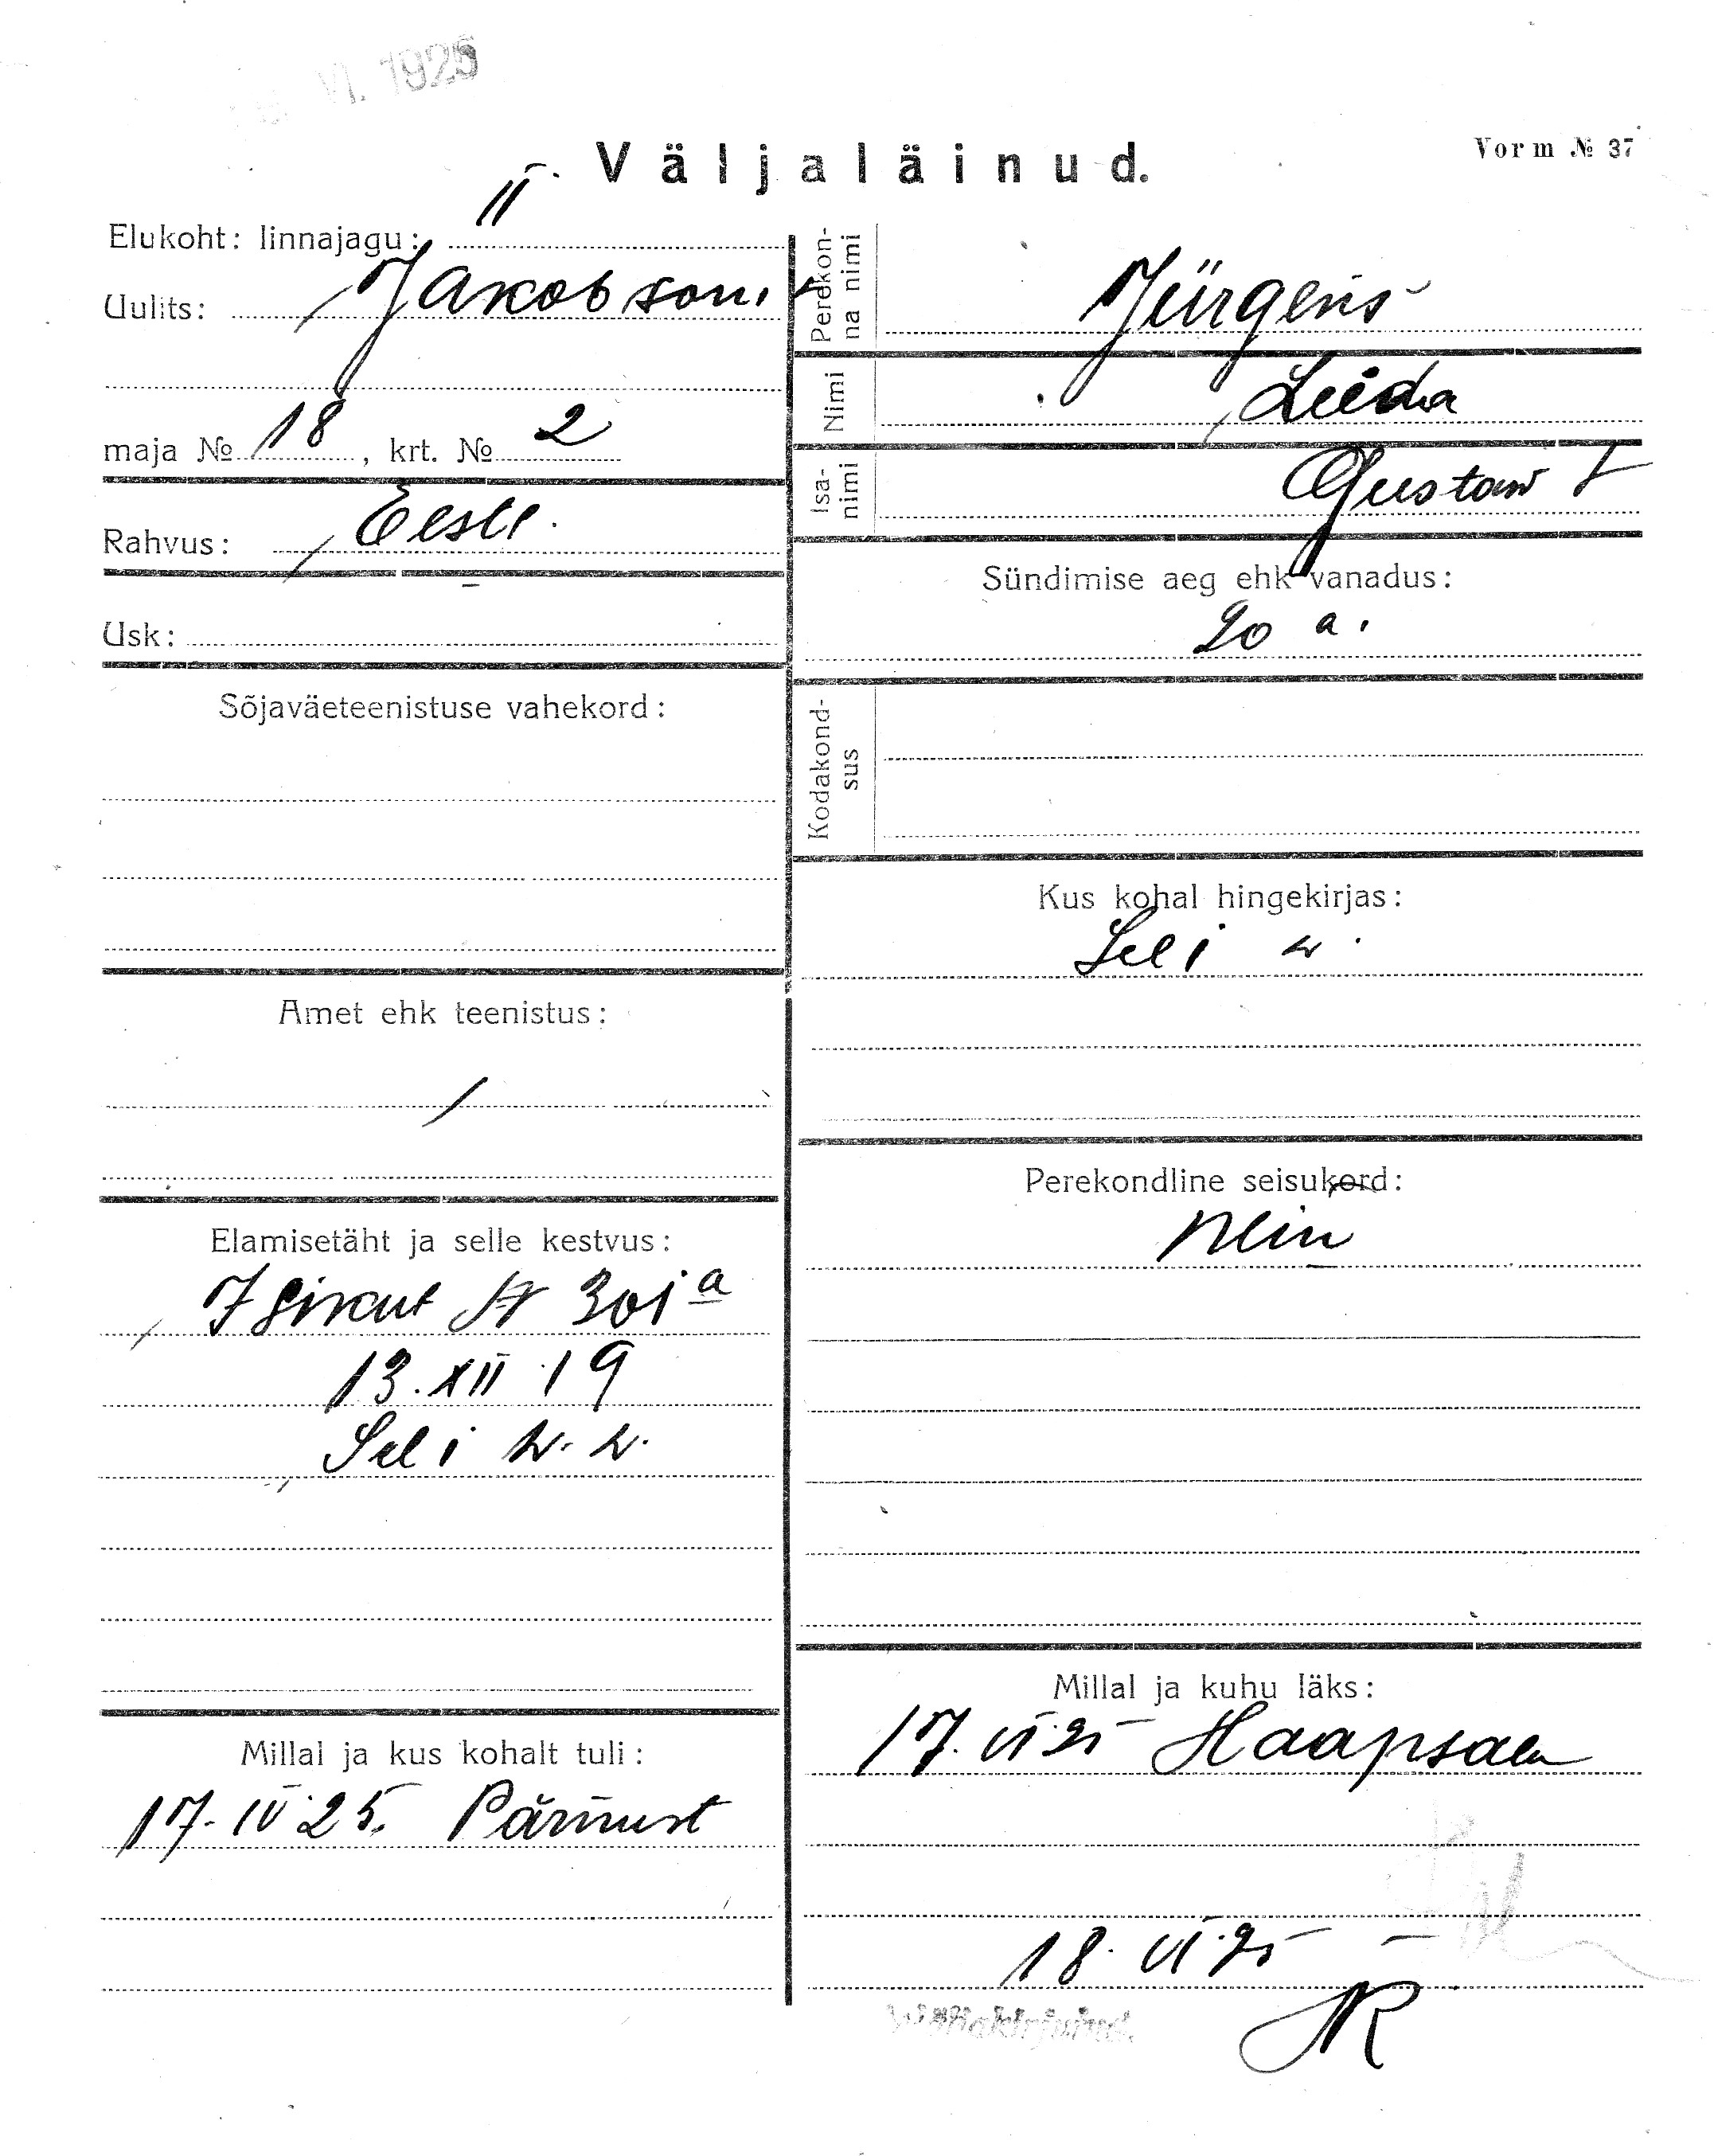 VI. 1925
Väljaläinud.
Vorm № 37
Elukoht: linnajagu: II
Uulits: Jakobsoni
maja № 18, krt. № 2
Rahvus: Eesti.
Usk:
Sõjaväeteenistuse vahekord:
Amet ehk teenistus:
Elamisetäht ja selle kestvus:
Isikut № 301a
13. XII 19
Seli w. w.
Millal ja kus kohalt tuli:
17. IV 25. Pärnust
Perekonna nimi
Jürgens
Nimi
Leida
Isanimi
Gustaw t
Sündimise aeg ehk vanadus:
20 a.
Kodakondsus
Kus kohal hingekirjas:
Seli w.
Perekondline seisukord:
Millal ja kuhu läks:
17. VI 25 Haapsalu
18. VI 25